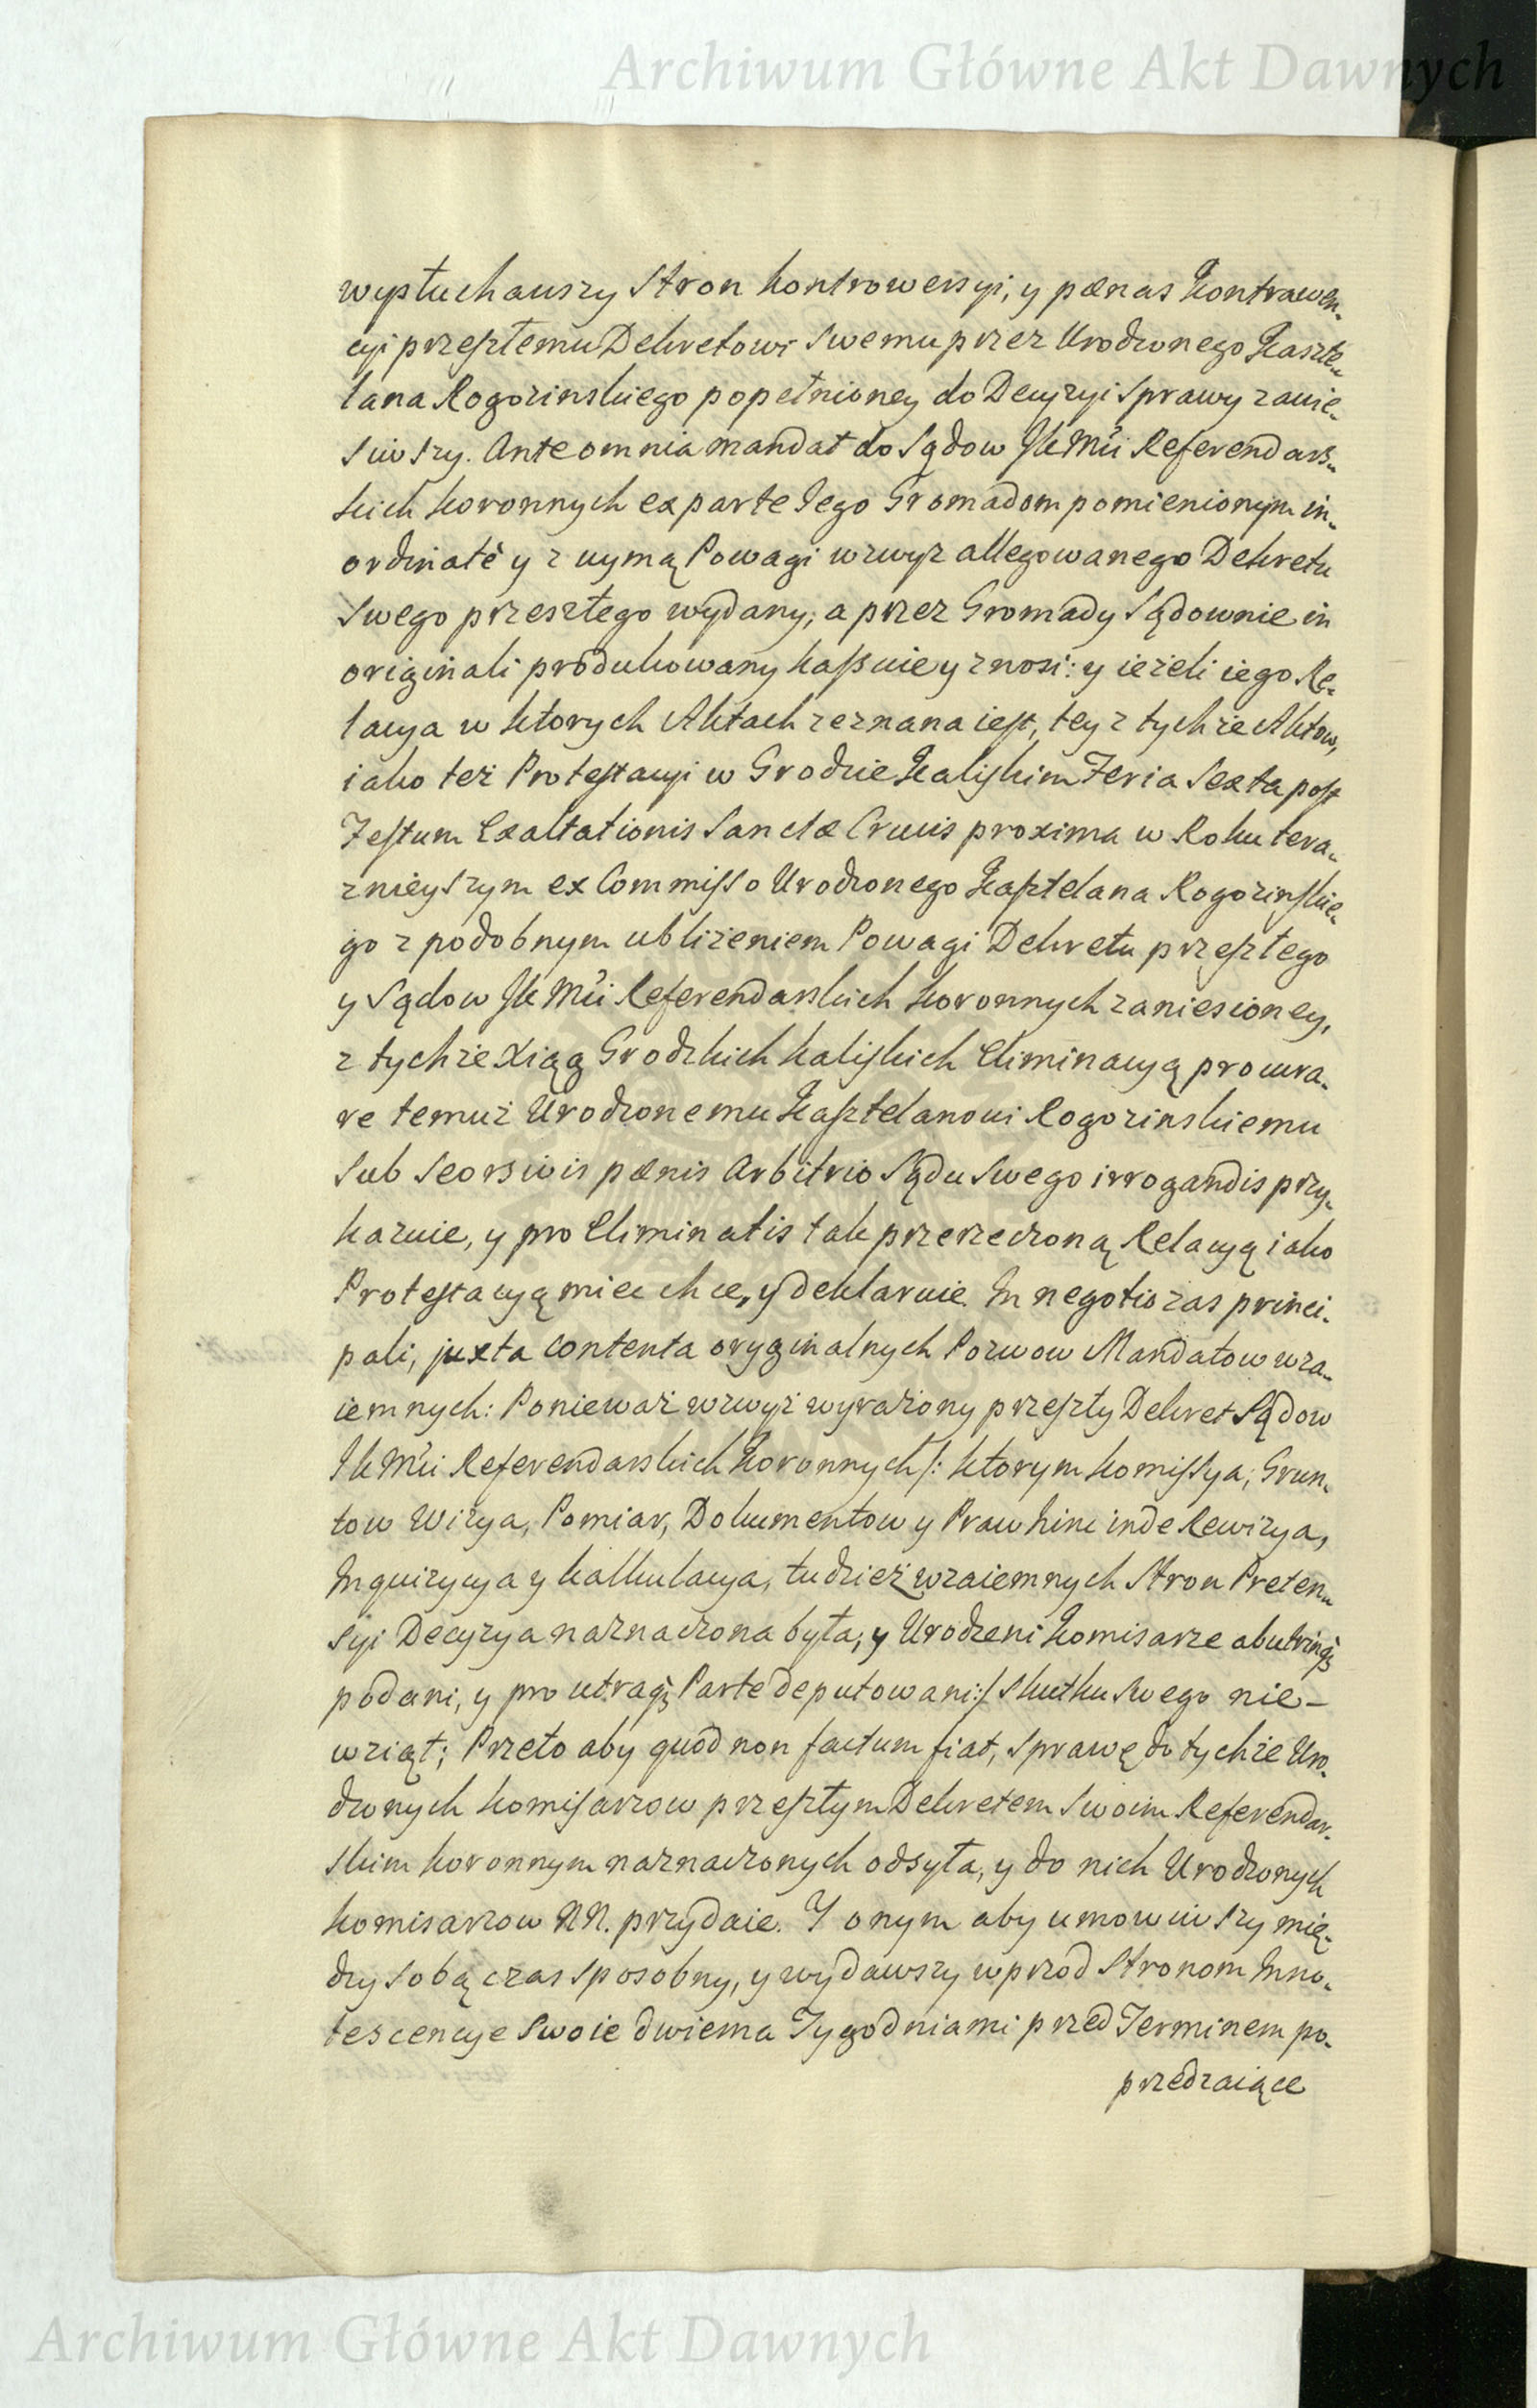 Archiwum Główne Akt Dawnych
wysłuchauszy Stron kontrowersyi, y pænas Kontrawen-
cyi przeszłemu Dekretowi Swemu przez Urodzonego Kaszte-
lana Rogozinskiego popełnioney do Decyzyi Sprawy zanie-
siwszy. Ante omnia mandat do Sądow JKMći Referendars-
kich koronnych ex parte Jego Gromadom pomienionym in-
ordinatè y z uymą Powagi wzwyż allegowanego Dekretu
Swego przeszłego wydany, a przez Gromady Sądownie in
originali produkowany kassuie y znosi: y ieżeli iego Re-
lacya w ktorych Aktach zeznana iest, tey z tychże Aktow,
iako też Protestacyi w Grodzie Kaliskim Feria Sexta post
Festum Exaltationis Sanctæ Crucis proxima w Roku tera-
znieyszym ex Commisso Urodzonego Kasztelana Rogozinskie-
go z podobnym ubliżeniem Powagi Dekretu przeszłego
y Sądow JKMći Referendarskich koronnych zaniesioney,
z tychże Xiąg Grodzkich kaliskich Eliminacyą procura-
re temuż Urodzonemu Kasztelanowi Rogozinskiemu
Sub Seorsivis pænis Arbitrio Sądu Swego irrogandis przy-
kazuie, y pro Eliminatis tak przerzeczoną Relacyą iako
Protestacyą miec chce, y deklaruie. In negotio zas princi-
pali, juxta contenta oryginalnych Pozwow Mandatow wza-
iemnych: Ponieważ wzwyż wyrażony przeszły Dekret Sądow
JKMći Referendarskich Koronnych /: ktorym komissya, Grun-
tow Wizya, Pomiar, Dokumentow y Praw hinc inde Rewizya,
Inquizycya y kalkulacya, tudzież wzaiemnych Stron Preten-
syi Decyzya naznaczona była, y Urodzeni Komisarze ab utrinq3
podani, y pro utraq3 Parte deputowani :/ Skutku Swego nie-
wziął; Przeto aby quod non factum fiat, Sprawę do tychże Uro-
dzonych komisarzow przeszłym Dekretem Swoim Referendar-
skim koronnym naznaczonych odsyła, y do nich Urodzonych
komisarzow NN. przydaie. Y onym aby umowiwszy mię-
dzy Sobą czas Sposobny, y wydawszy wprzod Stronom Inno-
tescencye Swoie dwiema Tygodniami przed Terminem po-
przedzaiące
Archiwum Główne Akt Dawnych